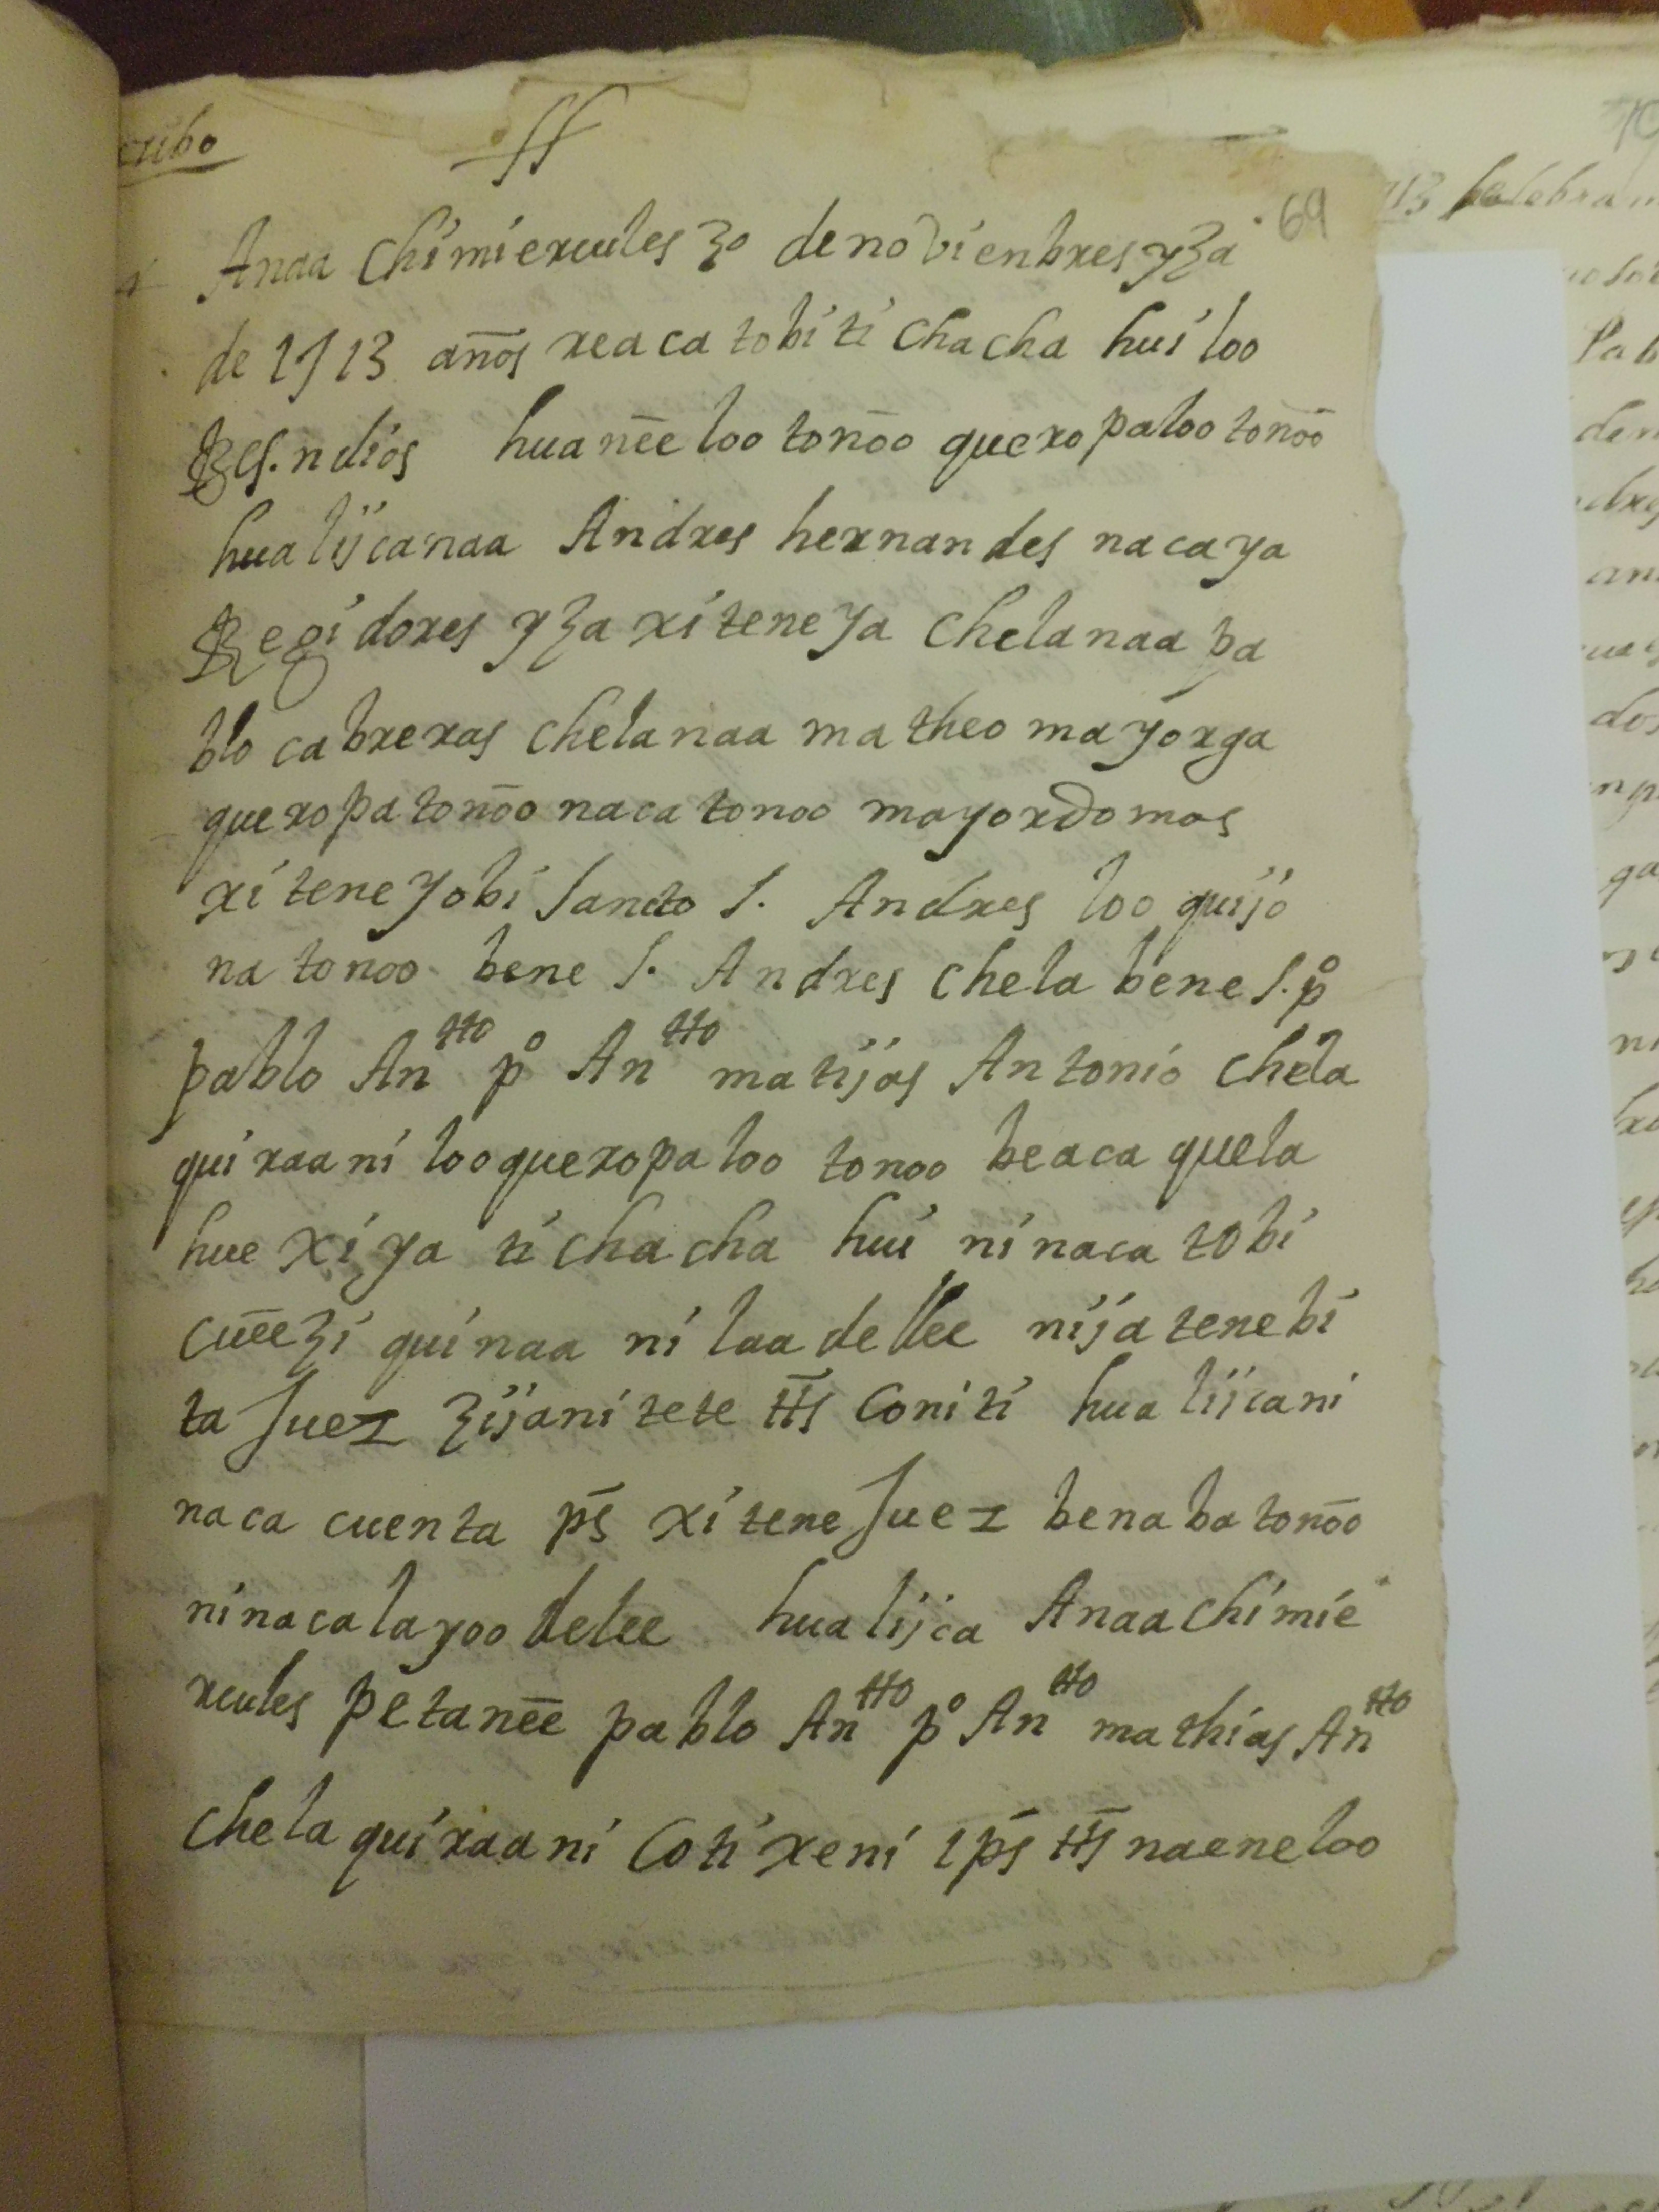 ff
69
Anaa chimiercules 30 de novienbres yza
de 1713 años reaca tobi tichacha huiloo
Res.n dios huanēe loo tonōo queropaloo tonōo
hualijcanaa Andres hernandes nacaya
Regidores yza xiteneya chelanaa pa
blo cabreras chelanaa matheo mayorga
queropa tonōo naca tonoo mayordomos
xitene yobi sancto S. Andres loo quijo
na tonoo bene S. Andres chela bene S. pº
pablo Antto pº Antto matijas Antonio chela
quiraani loo queropaloo tonoo beaca quela
huexiya tichacha hui ninaca tobi
cuēezi quinaa ni laa delle nija tenebi
ta Juez zijani tete tts coniti hualijcani
naca cuenta ps xitene Juez benaba tonōo
ninaca layoo delee hualijca Anaa chimie
rcules petanēe pablo Antto pº Antto mathias Antto
chela quiraani cotixeni 1 ps tts naeneloo